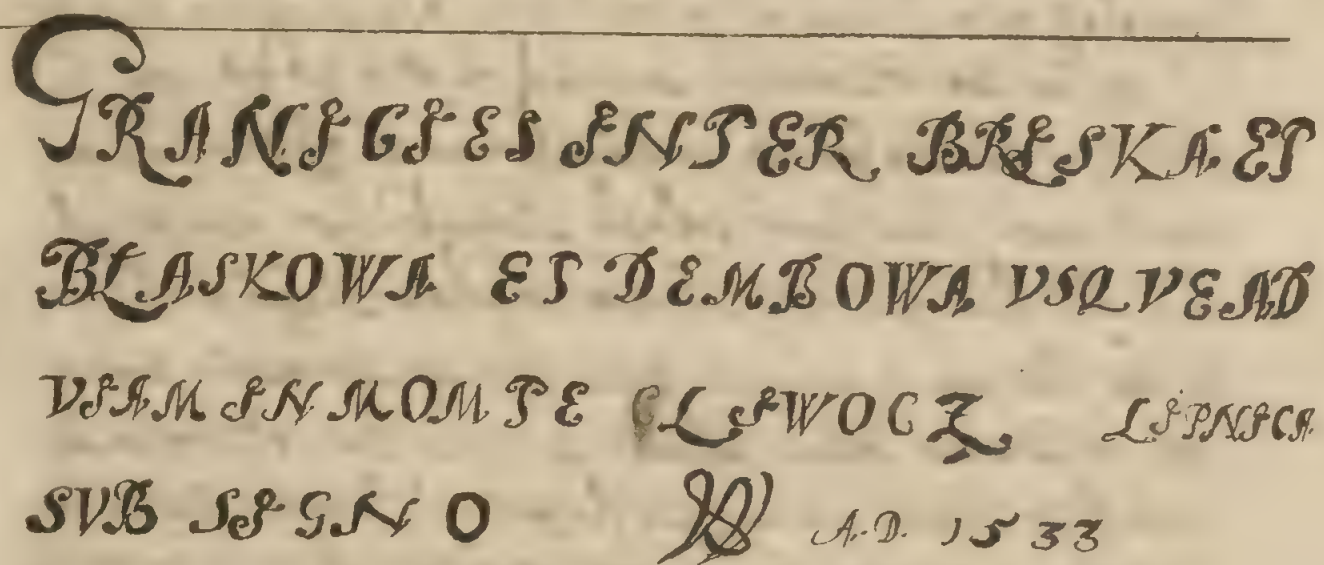 GRANICIES INTER BRESKA ET
BLASKOWA ET DEMBOWA VSQVE AD
VIAM IN MOMTE CLIWOCZ LIPNICA
SVB SIGNO W A.D. 1533